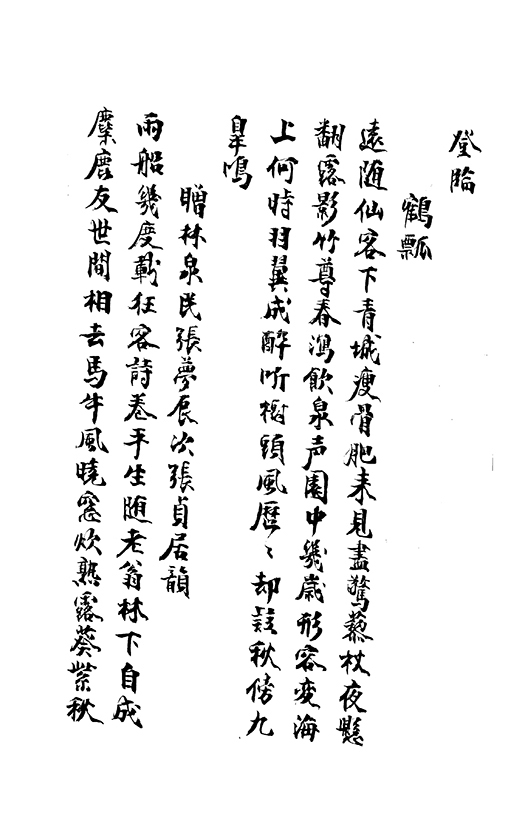 登臨
鶴瓢
遠随仙客下青城瘦骨肥来見盡驚藜杖夜懸
翻露影竹尊春瀉飲泉声園中幾歳形容変海
上何時羽翼成酔听樹頭風歴〻却疑秋傍九
皐鳴
贈林泉民張夢辰次張貞居韻
雨船幾度載狂客詩巻平生随老翁林下自成
麋鹿友世間相去馬牛風曉窓炊熟露葵紫秋